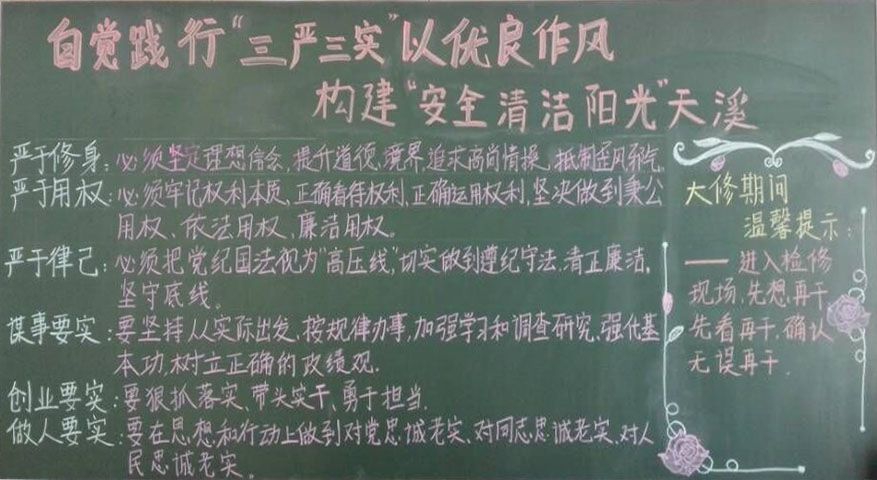 自觉践行“三严三实”以优良作风
构建“安全清洁阳光”天溪
严于修身：必须坚定理想信念，提升道德，境界，追求高尚情操，抵制歪风邪气。
严于用权：必须牢记权利本质、正确看待权利，正确运用权利，坚决做到秉公
用权、依法用权、廉洁用权。
严于律己：必须把党纪国法视为“高压线”，切实做到遵纪守法，清正廉洁，
坚守底线。
谋事要实：要坚持从实际出发，按规律办事，加强学习和调查研究，强化基
本功，树立正确的政绩观。
创业要实：要狠抓落实、带头实干、勇于担当。
做人要实：要在思想和行动上做到对党忠诚老实、对同志忠诚老实、对人
民忠诚老实。
大修期间
温馨提示：
——进入检修
现场，先想再干，
先看再干，确认
无误再干。